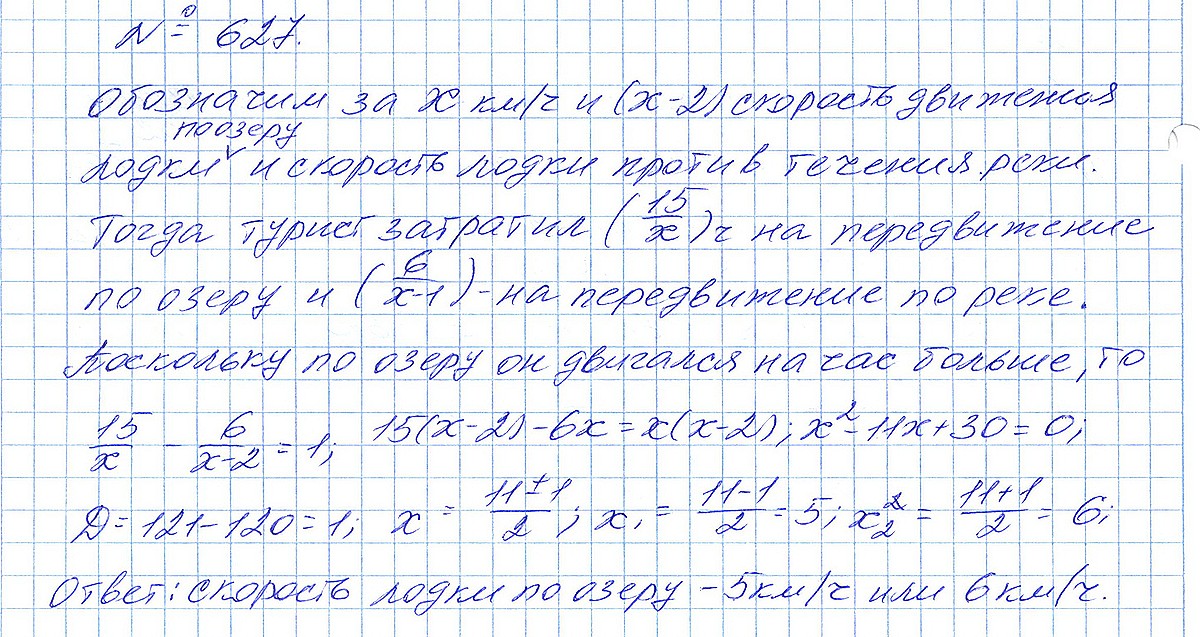 № 627.
Обозначим за x км/ч и (x-2) скорость движения
по озеру
лодки и скорость лодки против течения реки.
Тогда турист затратил (15/x) ч на передвижение
по озеру и (6/x-1) - на передвижение по реке.
Поскольку по озеру он двигался на час больше, то
15/x - 6/x-2 = 1; 15(x-2)-6x=x(x-2); x²-11x+30=0;
D=121-120=1; x = 11±1/2; x₁ = 11-1/2 = 5; x₂ = 11+1/2 = 6;
Ответ: скорость лодки по озеру - 5км/ч или 6км/ч.